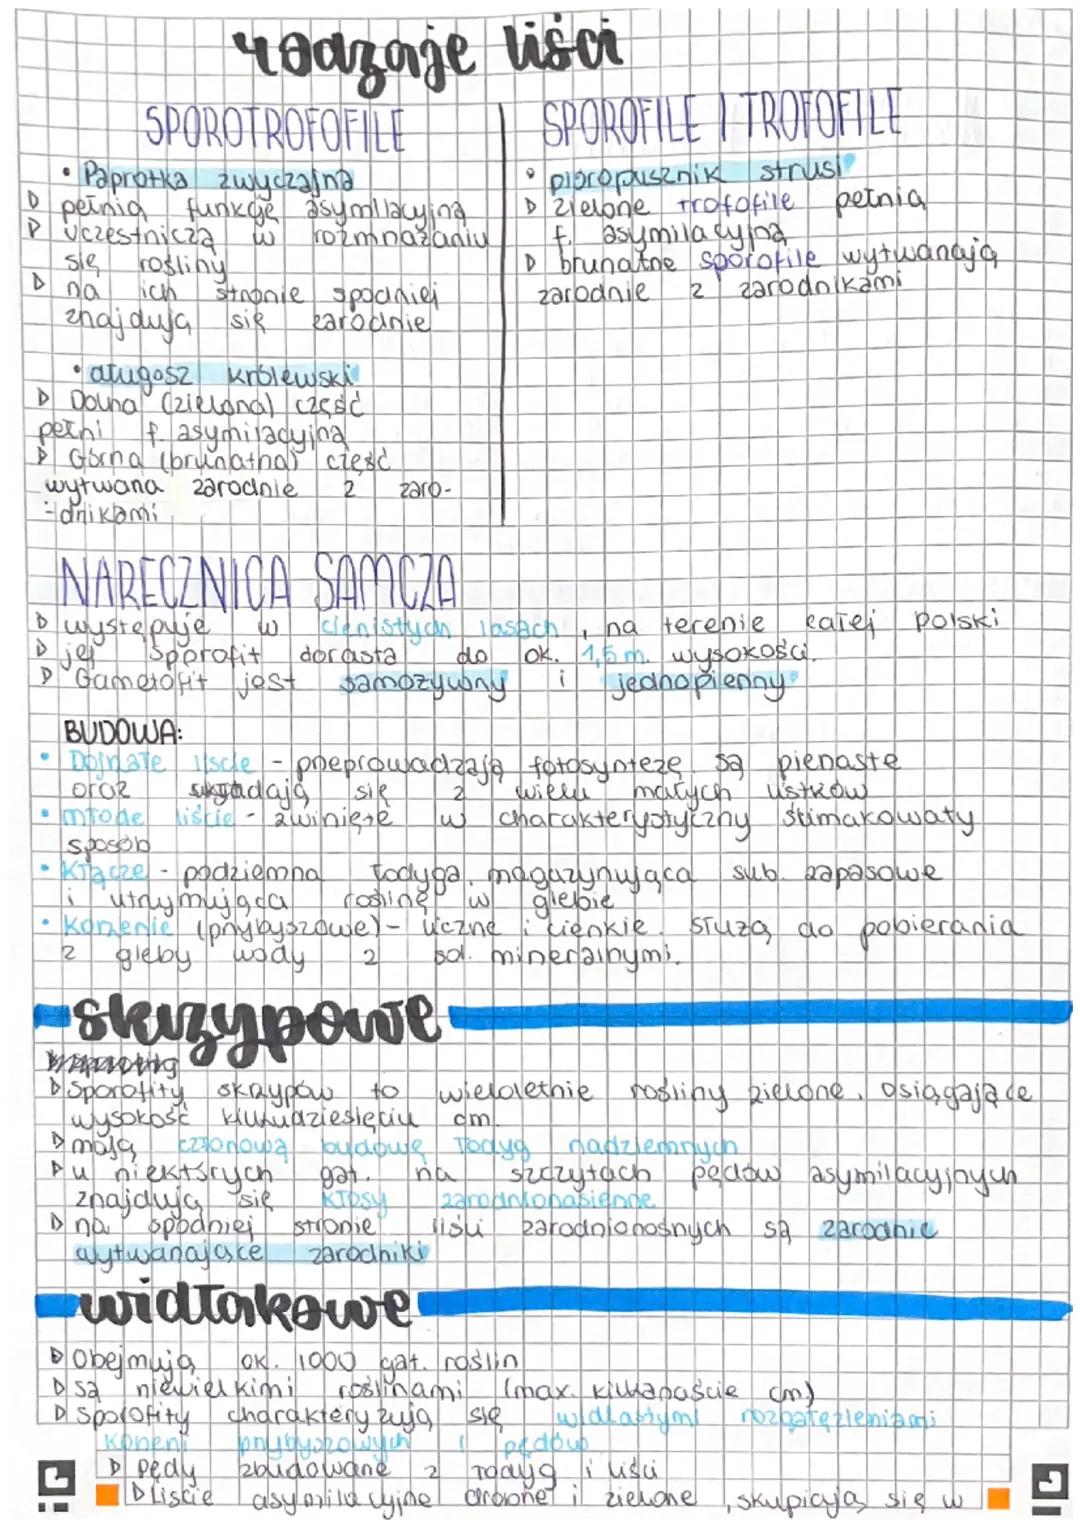 rodzaje liści
SPOROTROFOFILE
• Paprotka zwyczajna
▷ pełnią funkcję asymilacyjną
▷ uczestniczą w rozmnażaniu
się rośliny
▷ na ich stronie spodniej
znajdują się zarodnie
• długosz królewski
▷ Dolna (zielona) część
pełni f. asymilacyjną
▷ Górna (brunatna) część
wytwarza zarodnie z zaro-
-dnikami
SPOROFILE I TROFOFILE
• pióropusznik strusi
▷ zielone trofofile pełnią
f. asymilacyjną
▷ brunatne sporofile wytwarzają
zarodnie z zarodnikami
NARECZNICA SAMCZA
▷ występuje w cienistych lasach, na terenie całej Polski
▷ jej sporofit dorasta do ok. 1,5 m. wysokości.
▷ Gametofit jest samożywny i jednopienny
BUDOWA:
• Dojrzałe liście - przeprowadzają fotosyntezę. są pierzaste
oraz składają się z wielu małych listków
• młode liście - zwinięte w charakterystyczny ślimakowaty
sposób
• Kłącze - podziemna łodyga, magazynująca sub. zapasowe
i utrzymująca roślinę w glebie
• korzenie (przybyszowe) - liczne i cienkie. służą do pobierania
z gleby wody z sol. mineralnymi.
skrzypowe
▷ Sporofity skrzypów to wieloletnie rośliny zielone, osiągające
wysokość kilkudziesięciu cm.
▷ mają członową budowę łodyg nadziemnych
▷ u niektórych gat. na szczytach pędów asymilacyjnych
znajdują się kłosy zarodnionasienne
▷ na spodniej stronie liści zarodnionośnych są zarodnie
wytwarzające zarodniki
widłakowe
▷ Obejmują ok. 1000 gat. roślin
▷ są niewielkimi roślinami (max. kilkanaście cm)
▷ Sporofity charakteryzują się widlastymi rozgałęzieniami
korzeni przybyszowych i pędów
▷ pędy zbudowane z łodyg i liści
▷ Liście asymilacyjne drobne i zielone, skupiają się w